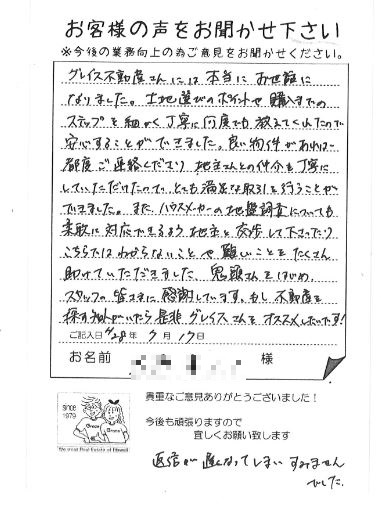 お客様の声をお聞かせ下さい
※今後の業務向上の為ご意見をお聞かせください。
グレイス不動産さんには本当にお世話に
なりました。土地選びのポイントや購入までの
ステップを細かく丁寧に何度でも教えてくれたので
安心することができました。良い物件があれば
都度ご連絡くださり地主さんとの仲介も丁寧に
していただけたので、とても満足な取引を行うことが
できました。また、ハウスメーカーの地盤調査についても
柔軟に対応できるよう地主と交渉して下さったり
こちらではわからないことや難しいことをたくさん
助けていただきました。鬼頭さんをはじめ、
スタッフの皆さまに感謝しています。もし不動産を
探す知人がいたら是非グレイスさんをオススメしたいです!
ご記入日 H28年 7月 17日
お名前 様
貴重なご意見ありがとうございました!
今後も頑張りますので
宜しくお願い致します
since
1979
Grace
Grace
返信が遅くなってしまいすみません
でした。